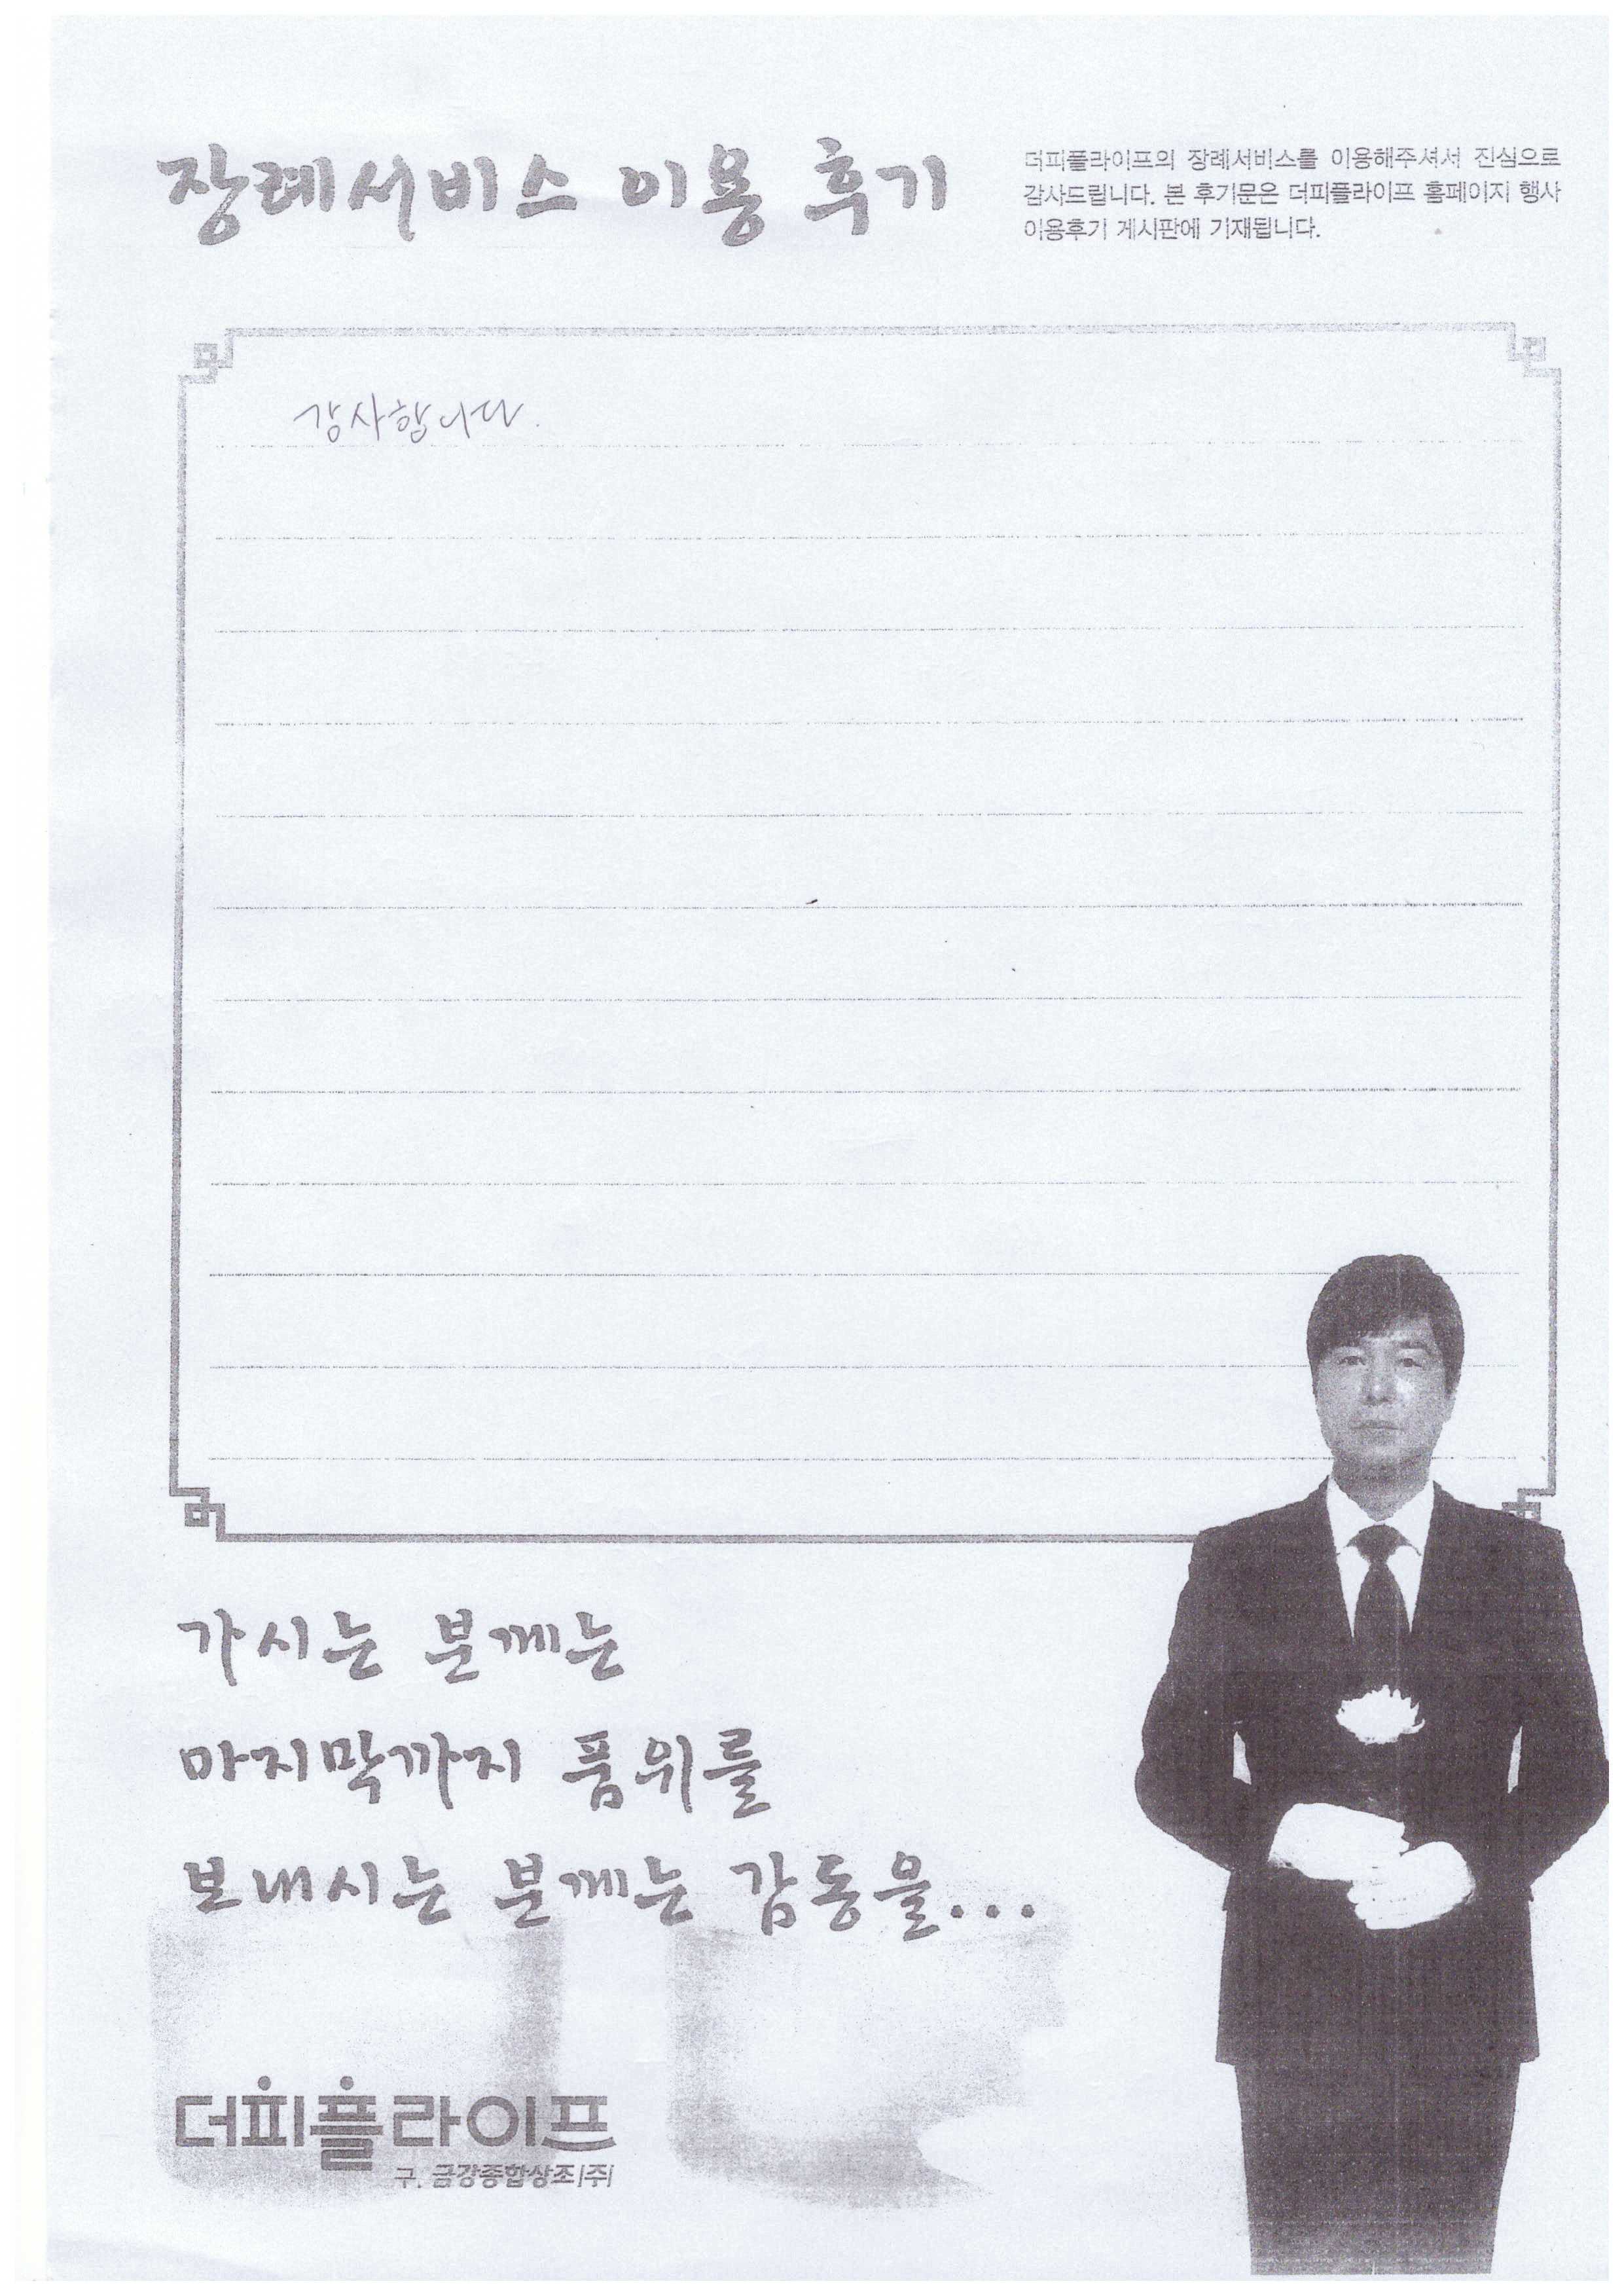 장례서비스 이용 후기
더피플라이프의 장례서비스를 이용해주셔서 진심으로
감사드립니다. 본 후기문은 더피플라이프 홈페이지 행사
이용후기 게시판에 기재됩니다.
감사합니다.
가시는 분께는
마지막까지 품위를
보내시는 분께는 감동을...
더피플라이프
구. 금강종합상조(주)